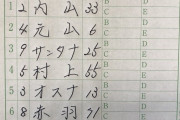 1 2 内山 33 B D C E
2 4 元山 6 B D C E
3 9 サンタナ 25 B D C E
4 5 村上 55 B D C E
5 3 オスナ 13 B D C E
6 8 赤羽 31 B D C E